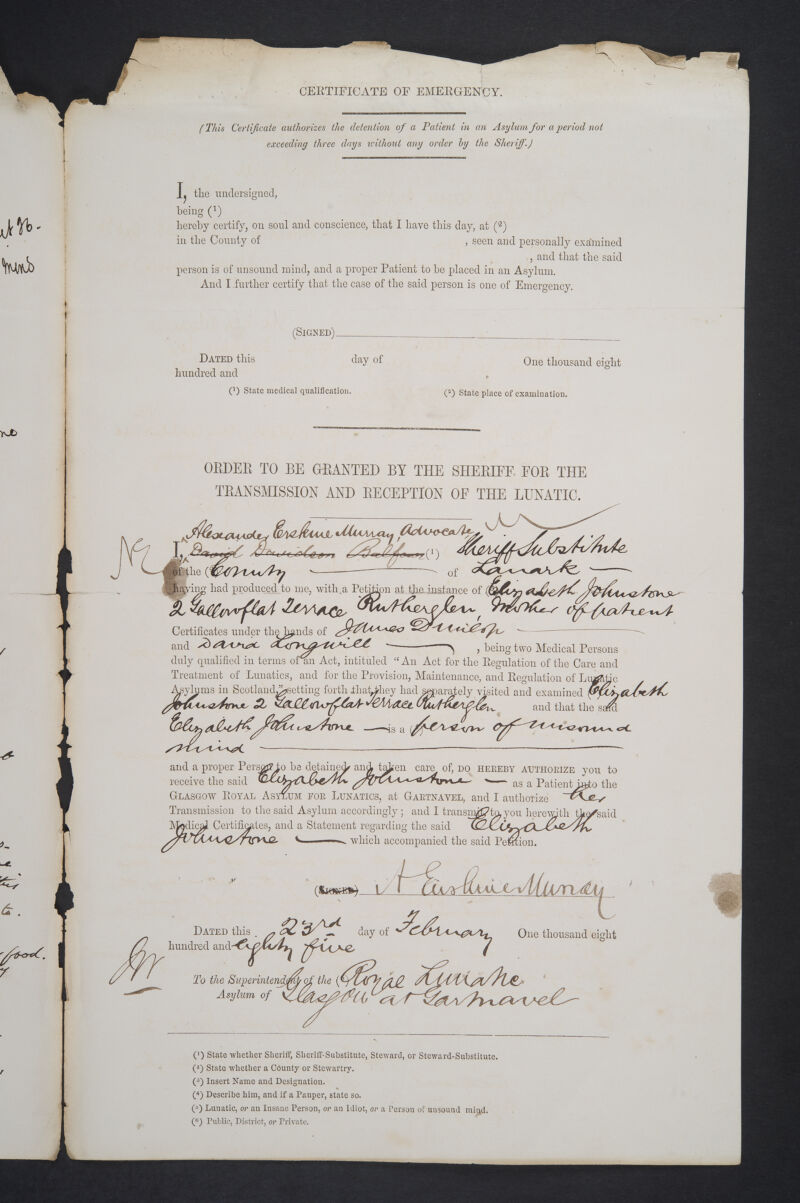 ut 26-
mind
CERTIFICATE OF EMERGENCY.
(This Certificate authorizes the detention of a Patient in an Asylum for a period not
exceeding three days without any order by the Sheriff.)
I, the undersigned,
being (1)
hereby certify, on soul and conscience, that I have this day, at (2)
in the County of , seen and personally examined
, and that the said
person is of unsound mind, and a proper Patient to be placed in an Asylum.
And I further certify that the case of the said person is one of Emergency.
(SIGNED)
DATED this day of One thousand eight
hundred and
(1) State medical qualification. (2) State place of examination.
ORDER TO BE GRANTED BY THE SHERIFF FOR THE
TRANSMISSION AND RECEPTION OF THE LUNATIC.
Alexander Erskine Murray, Advocate,
I, David Davidson Balfour (1) Sheriff Substitute
of the (2) County of Lanark
having had produced to me, with a Petition at the instance of (3) Elizabeth Johnstone
2 Gallowflat Terrace Rutherglen, Mother of patient
Certificates under the hands of James Dunlop
and David Longwill , being two Medical Persons
duly qualified in terms of an Act, intituled "An Act for the Regulation of the Care and
Treatment of Lunatics, and for the Provision, Maintenance, and Regulation of Lunatic
Asylums in Scotland," setting forth that they had separately visited and examined Elizabeth
Johnstone 2 Gallowflat Terrace Rutherglen and that the said
Elizabeth Johnstone is a person of unsound
mind
and a proper Person to be detained and taken care of, DO HEREBY AUTHORIZE you to
receive the said Elizabeth Johnstone as a Patient into the
GLASGOW ROYAL ASYLUM FOR LUNATICS, at GARTNAVEL, and I authorize her
Transmission to the said Asylum accordingly; and I transmit to you herewith the said
Medical Certificates, and a Statement regarding the said Elizabeth
Johnstone which accompanied the said Petition.
(SIGNED) A Erskine Murray
DATED this 23rd day of February One thousand eight
hundred and eighty five
To the Superintendent of the Royal Lunatic
Asylum of Glasgow at Gartnavel
food.
(1) State whether Sheriff, Sheriff-Substitute, Steward, or Steward-Substitute.
(2) State whether a County or Stewartry.
(3) Insert Name and Designation.
(4) Describe him, and if a Pauper, state so.
(5) Lunatic, or an Insane Person, or an Idiot, or a Person of unsound mind.
(6) Public, District, or Private.